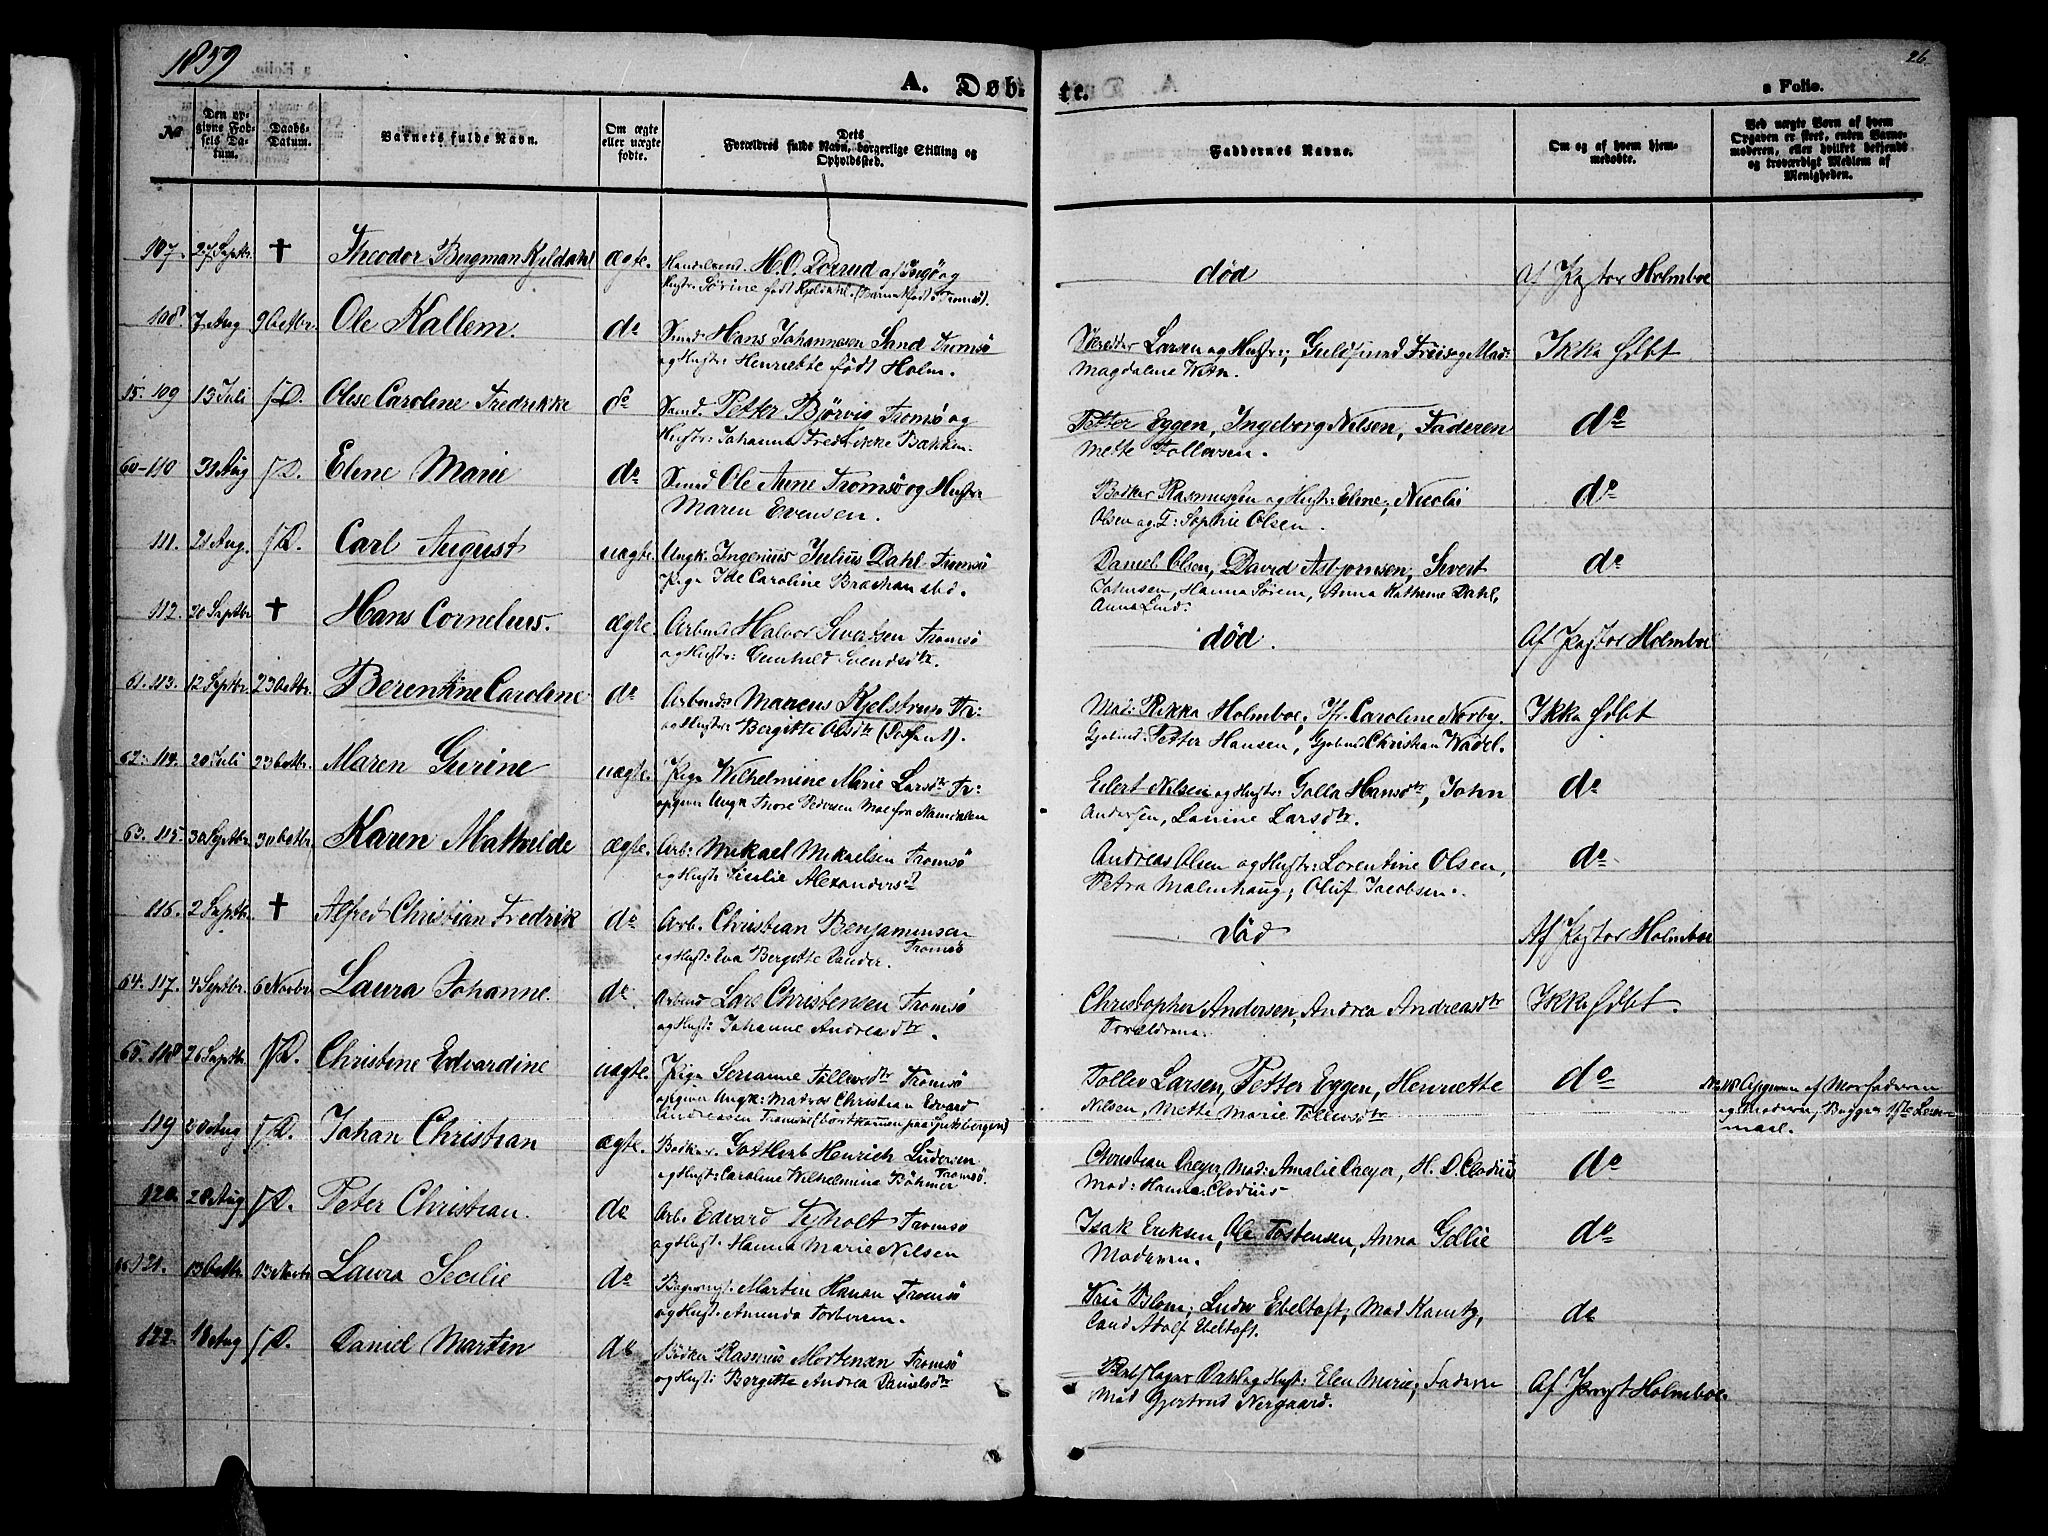 1859
26.
A. Døb-
te.
a Folio.
No
Den op-
givne Fød-
sels Da-
tum.
Daabs-
Datum.
Barnets fulde Navn.
Om ægte
eller uægte
fødte.
Dets
Forældres fulde Navn, borgerlige Stilling og
Opholdssted.
Faddernes Navne.
Om og af hvem hjem-
medøbte.
Ved uægte Børn af hvem
Opgaven er skeet, enten Barne-
moderen, eller hvilket bekjendt
og troværdigt Medlem af
Menigheden.
107. 27 Septbr. † Theodor Bugman Kjeldahl ægte. Handelsmd. H. O. Lorrud af Ingø og
Hustr. Sørine født Kjeldahl. (Barnet født i Tromsø).
død Af Pastor Holmboe
108. 7 Aug 9 Octbr. Ole Kallem. do Smed: Hans Johannesen Sand Tromsø
og Hustr: Henriette født Holm.
Larsen og Hustr; Guldsmed Friis og Mad:
Magdalene Ikke Hdbt
15. 109 13 Juli S.D. Olese Caroline Fredrikke do Smed. Petter Bjørvig Tromsø og
Hustr: Johanna Fredrikke Bakken.
Petter Eggen, Ingeborg Nilsen, Faderen
Mette Tollevsen. do
60-110 31 Aug S.D. Elene Marie do Smed Ole Arne Tromsø og Hustr:
Maren Evensen.
Bødker Rasmussen og Hustr: Elene; Nicolai
Olsen og T: Sophie Olsen. do
111. 21 Aug. S.D. Carl August uægte. Ungk. Ingenius Julius Dahl Tromsø
Pige Ide Caroline Brækan sted.
Daniel Olsen, David Asbjørnsen, Sivert
Johnsen, Hanna Sørem, Anna Kathrine Dahl,
Anna Lind. do
112. 20 Septbr † Hans Cornelius. ægte. Arbmd Halvor Sivertsen Tromsø
og Hustr: Gunhild Svendsdtr.
død. Af Pastor Holmboe
61. 113. 12 Septbr. 23 Octbr. Berentine Caroline do Arbmd: Marcus Kjelstrup Tr:
og Hustr: Bergitte Olsdtr (Dosent).
Mad: Rikka Holmboe, Jfr. Caroline Norby.
Gjøbmd: Petter Hansen, Gjøbmd Christian Wadel. Ikke Hdbt
62. 114. 20 Juli 23 Octbr. Maren Gurine uægte. Pige Wilhelmine Marie Larsdtr Tr:
opgiven Ungk Thore Pedersen Moe fra Namdalen
Eilert Nilsen og Hustr: Golla Hansdtr, John
Andersen, Lanine Larsdtr. do
63. 115. 30 Septbr. 30 Octbr. Karen Mathilde ægte. Arb: Mikael Mikaelsen Tromsø
og Hust: Cicilie Alexandersdtr
Andreas Olsen og Hustr: Lorentine Olsen,
Petra Malmhaug; Oluf Jacobsen. do
116. 2 Septbr. † Alfred Christian Fredrik do Arb. Christian Benjaminsen
Tromsø
og Hust: Eva Bergitte Lander.
død Af Pastor Holmboe
64. 117. 4 Septbr. 6 Novbr. Laura Johanne. do Arbmd Lars Christensen Tromsø
og Hust: Johanne Andreasdtr.
Christopher Andersen, Andrea Andreasdtr
Forældrene. Ikke Hdbt.
65. 118 26 Septbr. S.D. Christine Edvardine uægte. Pige Serianne Tollevsdtr Tromsø
opgiven Ungk: Madros Christian Edvard
Andreasen Tromsø (bortkommen paa Spitsbergen)
Tollev Larsen, Petter Eggen, Henriette
Nilsen, Mette Marie Tollevsdtr do No 118 Opgiven af Morfaderen
og Moderen, Begges 1ste Leier-
maal.
119 20 Aug S.D. Johan Christian ægte. Bødker. Gottlieb Henrich Ludersen
Tromsø.
og Hust: Caroline Wilhelmina Böhmer
Christian Dreyer, Mad: Amalie Dreyer, H. D. Clodius
Mad: Hanna Clodius do
120. 28 Aug S.D. Peter Christian. do Arb. Edvard Tyholt Tromsø
og Hust. Hanna Marie Nilsen
Isak Eriksen, Ole Tostensen, Anna Gollie
Moderen. do
66. 121. 13 Octbr. 13 Novbr. Laura Secilie do Bagersvt: Martin Hanan Tromsø
og Hust: Amunda Torbersen.
Fru Blom; Luder Ebeltoft; Mad Kamtz,
Cand Adolf Ebeltoft. do
122. 18 Aug S.D. Daniel Martin do Bødker Rasmus Mortensen Tromsø
og Hust: Bergitte Andrea Danielsdtr
Dahl og Hust: Elen Marie; Faderen
Mad Gjertrud Nergaard. Af Præst Holmboe.